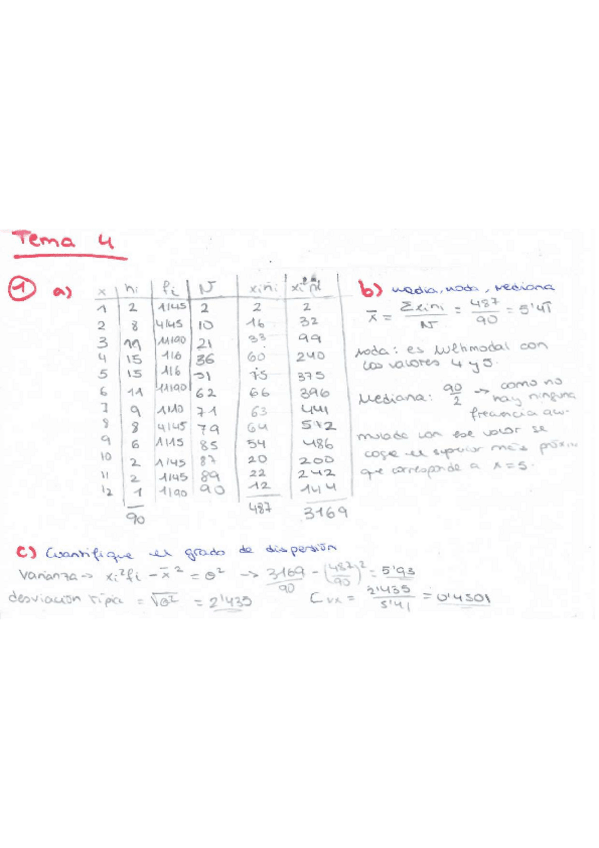 Tema 4
1 a)
x | ni | fi | N | xini | xi²ni
1 | 2 | 1/45 | 2 | 2 | 2
2 | 8 | 4/45 | 10 | 16 | 32
3 | 11 | 11/90 | 21 | 33 | 99
4 | 15 | 1/6 | 36 | 60 | 240
5 | 15 | 1/6 | 51 | 75 | 375
6 | 11 | 11/90 | 62 | 66 | 396
7 | 9 | 1/10 | 71 | 63 | 441
8 | 8 | 4/45 | 79 | 64 | 512
9 | 6 | 1/15 | 85 | 54 | 486
10 | 2 | 1/45 | 87 | 20 | 200
11 | 2 | 1/45 | 89 | 22 | 242
12 | 1 | 1/90 | 90 | 12 | 144
90 487 3169
b) media, moda, mediana
x̄ = Σxini/N = 487/90 = 5'41
moda: es multimodal con
los valores 4 y 5.
Mediana: 90/2 → como no
hay ninguna
frecuencia acu-
mulada con ese valor se
coge el superior más próxim
que corresponde a x=5.
c) Cuantifique el grado de dispersión
Varianza → xi²fi − x̄² = σ² → 3169/90 − (487/90)² = 5'93
desviación típica = √σ² = 2'435 CVx = 2'435/5'41 = 0'4501